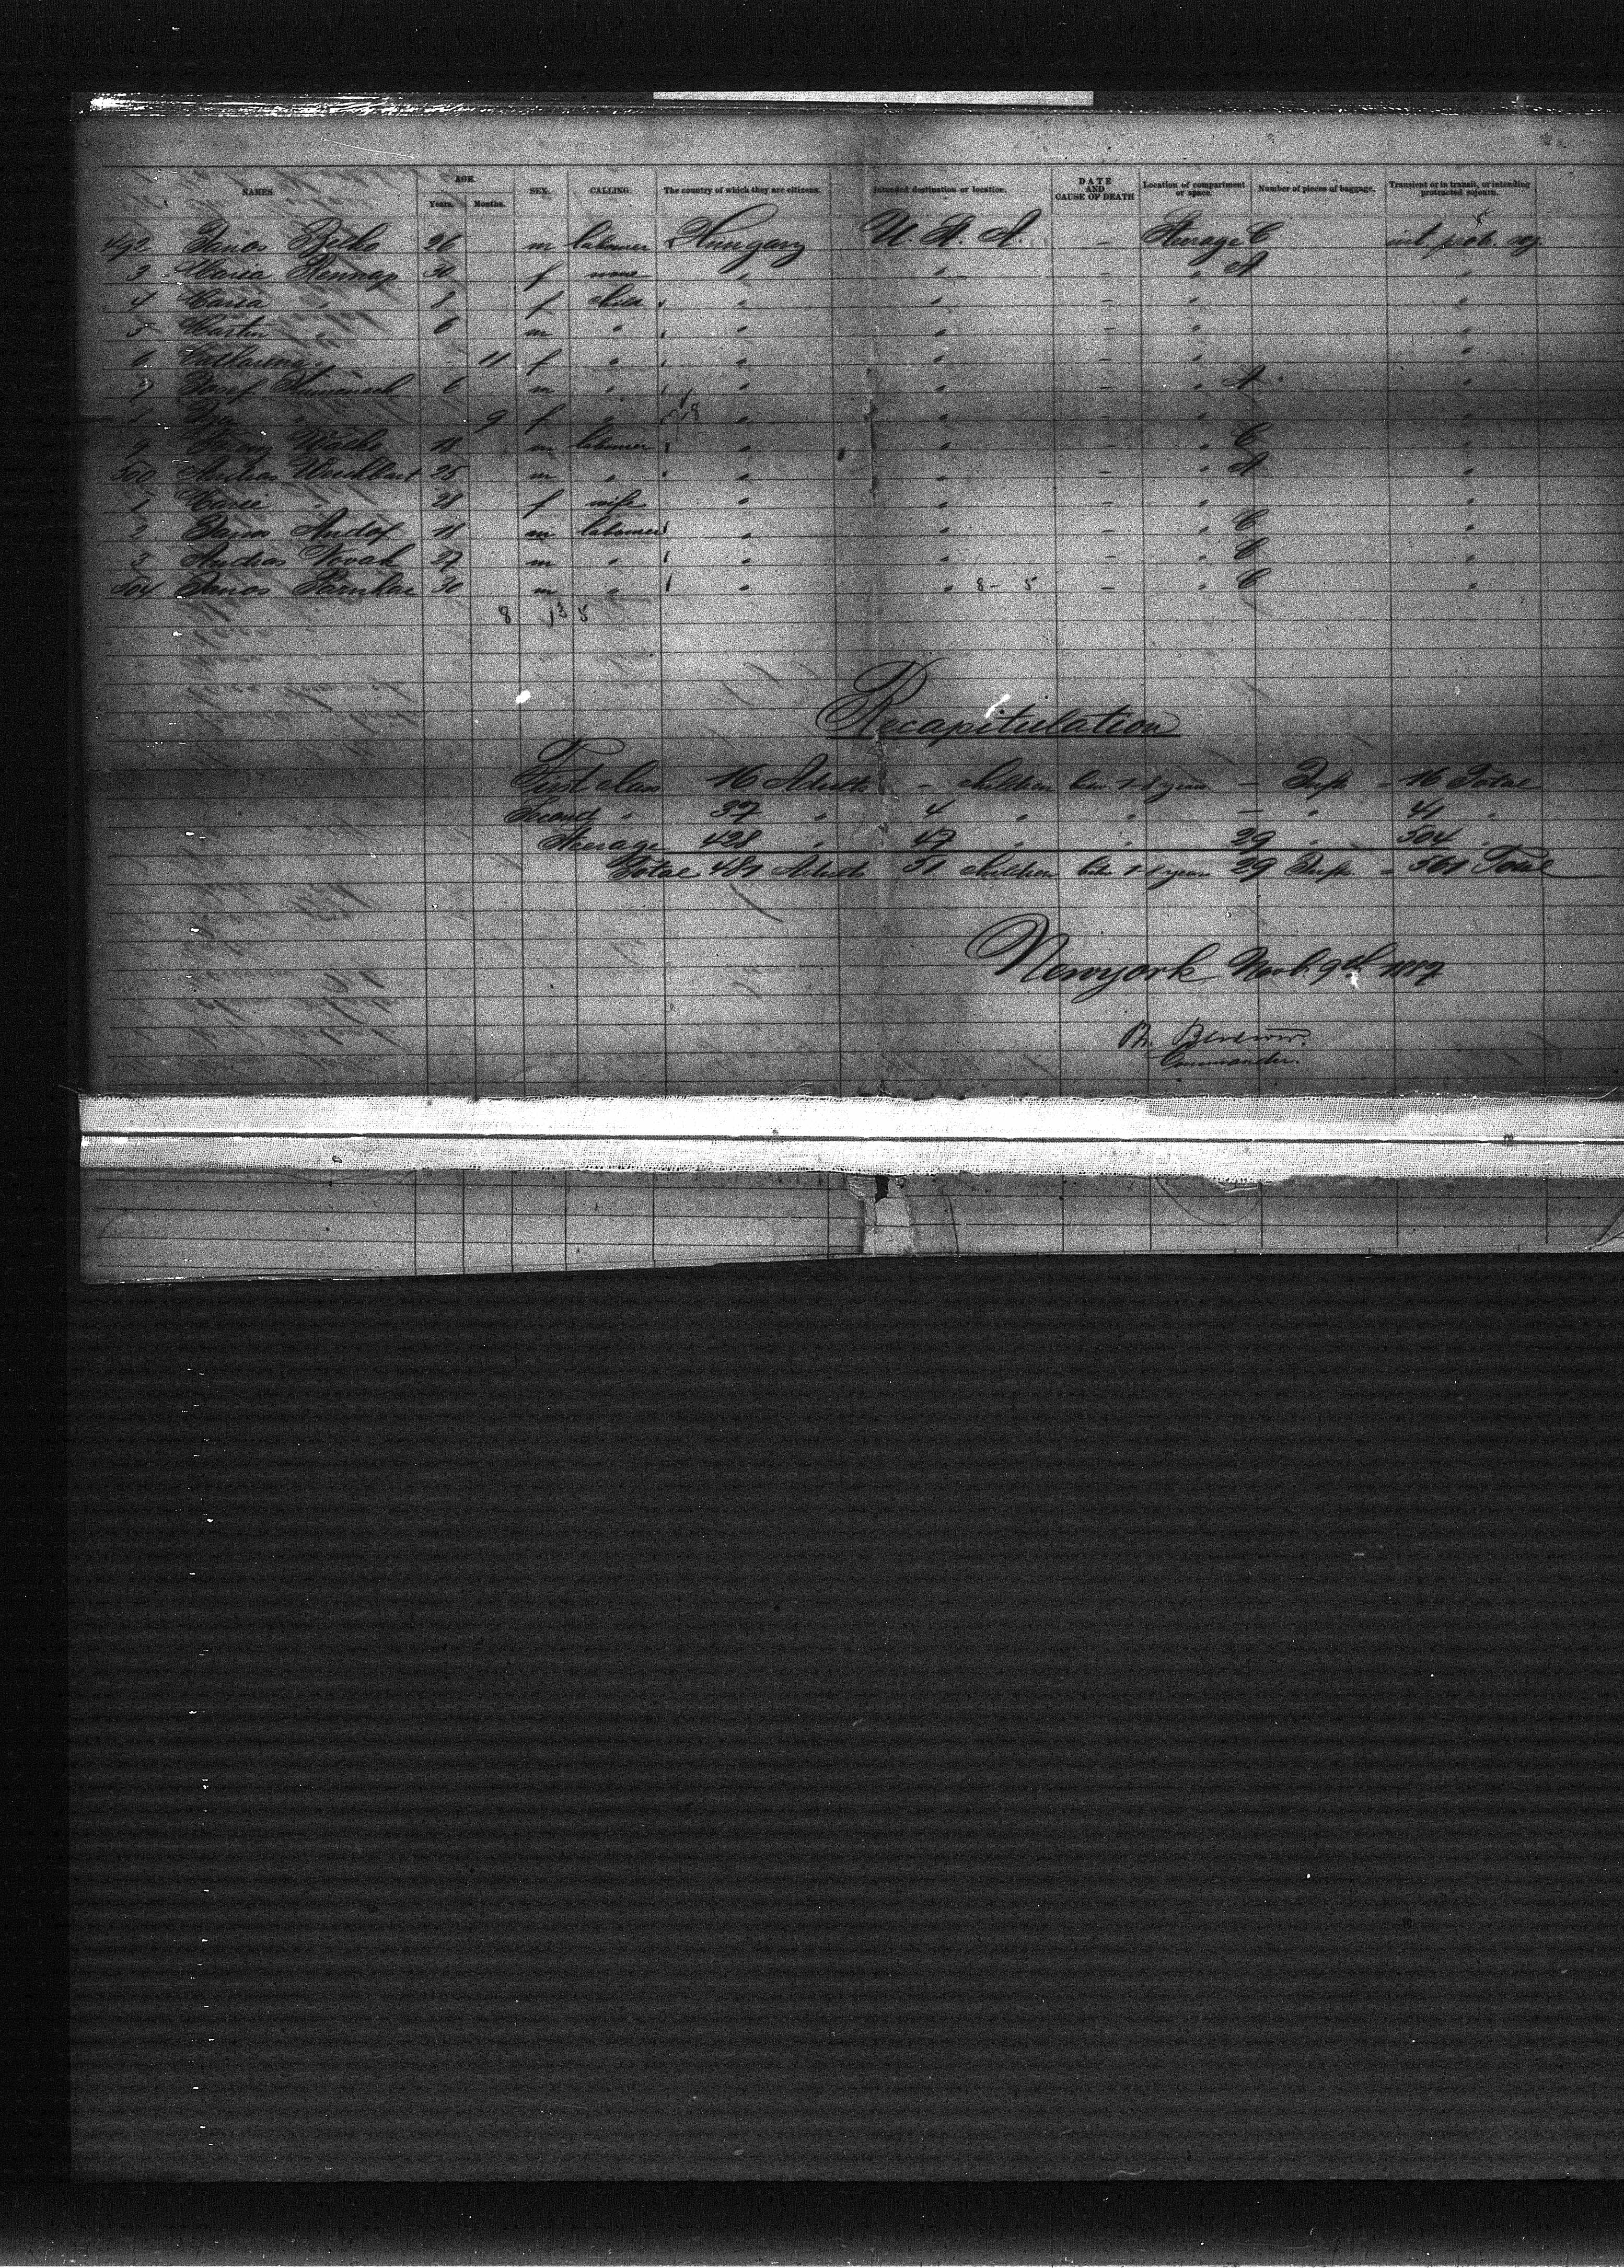 NAMES. AGE. Years. Months. SEX. CALLING. The country of which they are citizens. Intended destination or location. DATE AND CAUSE OF DEATH Location of compartment or space. Number of pieces of baggage. Transient or in transit, or intending protracted sojourn.
492 Janos 26 m labourer Hungary U. S. A. - Steerage C int. prot. soj.
3 Maria 30 f none " " - " A "
4 Maria " 8 f child " " - " "
5 Martin " 6 m " " " - " "
6 Katharina " 11 f " " " - " "
7 Josef 6 m " " " - " A "
8 " 9 f " " " - " "
9 18 m labourer " " - " C "
500 Andras 25 m " " " - " A "
1 Marie " 28 f wife " " - " "
2 Janos 18 m labourer " " - " C "
3 Andras Novak 27 m " " " - " C "
504 Janos 30 m " " " 8 - 5 - " C "
8 13 5
Recapitulation
First class 16 Adults - children betw. 1-8 years - Inft. = 16 Total
Second " 37 " 4 " " - " 41 "
Steerage 428 " 47 " " 29 " 504 "
Total 481 Adults 51 children betw. 1-8 years 29 Inft. = 561 Total
Newyork Novb. 9th 1887
Commander.